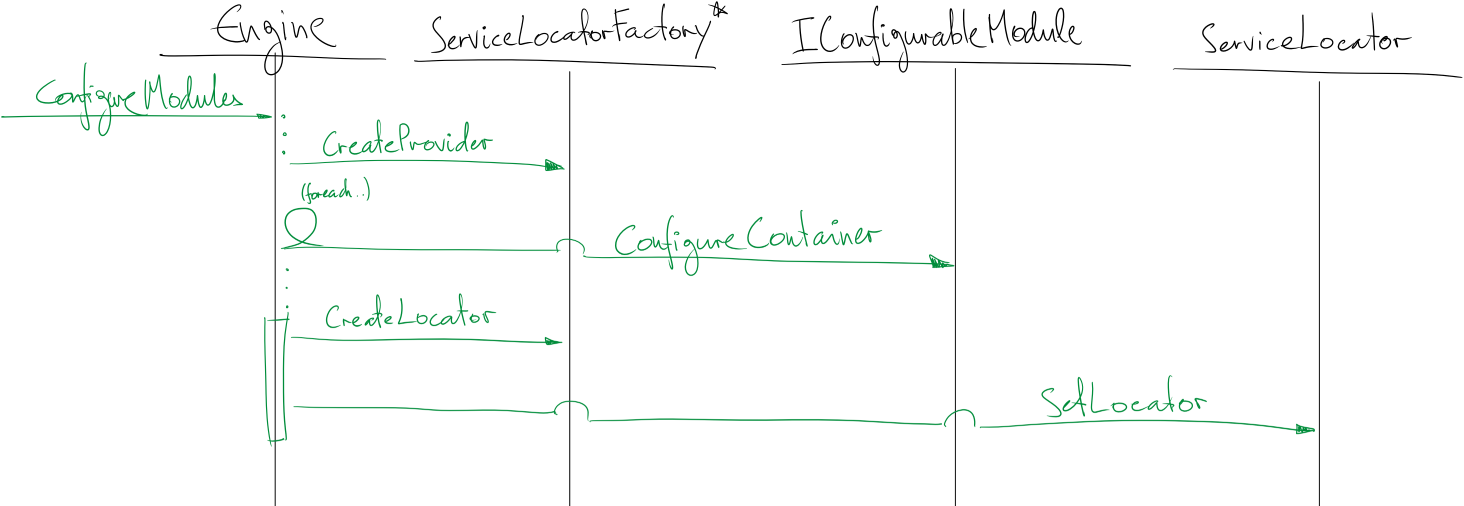 Engine
ServiceLocatorFactory*
IConfigurableModule
ServiceLocator
ConfigureModules
CreateProvider
(foreach..)
ConfigureContainer
CreateLocator
SetLocator